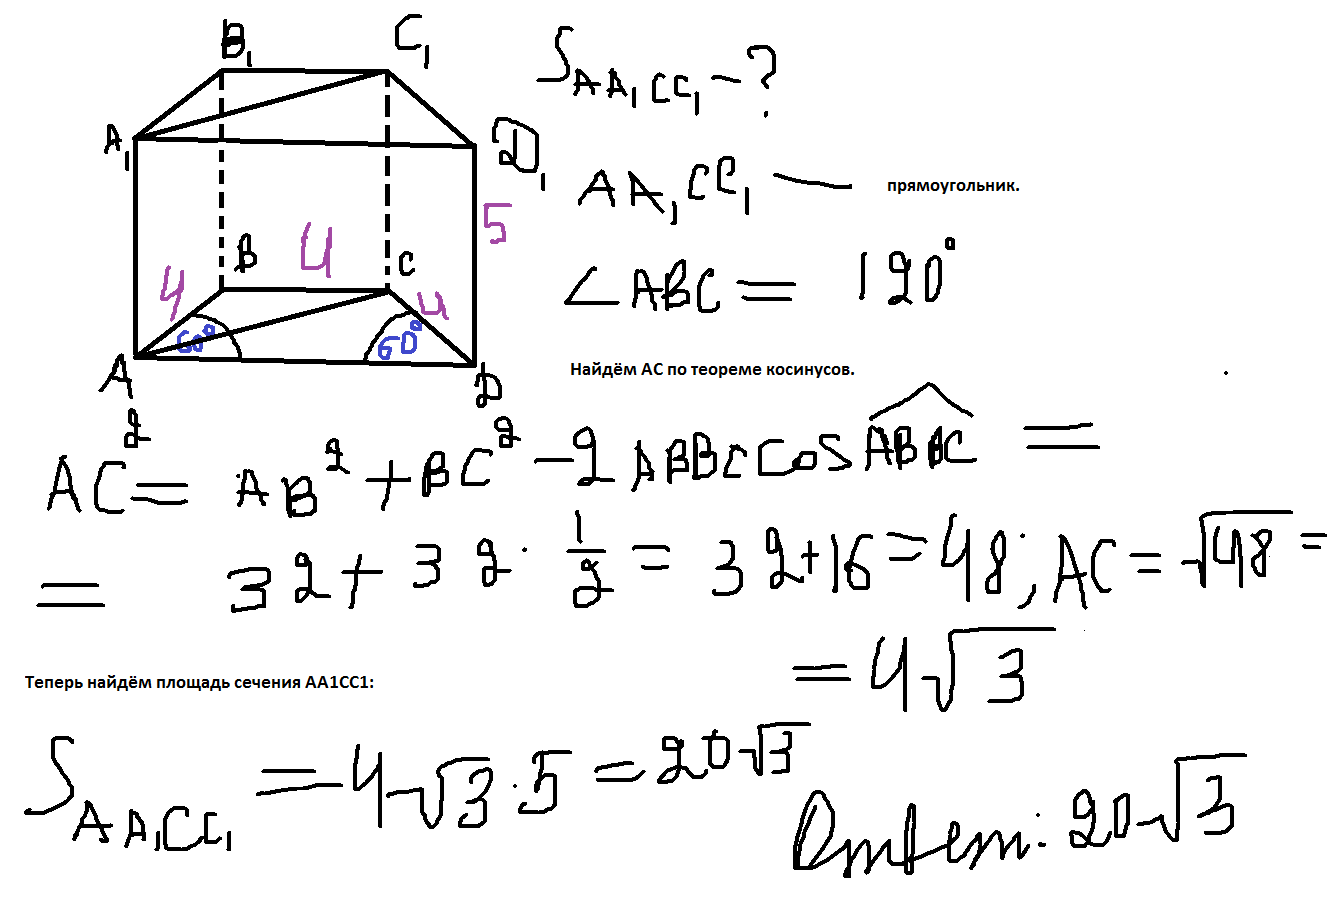 B₁ C₁
A₁ D₁
5
4 B 4 C 4
60° 60°
A D
S_AA₁CC₁ – ?
AA₁CC₁ — прямоугольник.
∠ABC = 120°
Найдём АС по теореме косинусов.
AC² = AB² + BC² – 2ABBCcosABC =
= 32 + 32 · 1/2 = 32 + 16 = 48; AC = √48 =
= 4√3
Теперь найдём площадь сечения АА1СС1:
S_AA₁CC₁ = 4√3 · 5 = 20√3
Ответ: 20√3